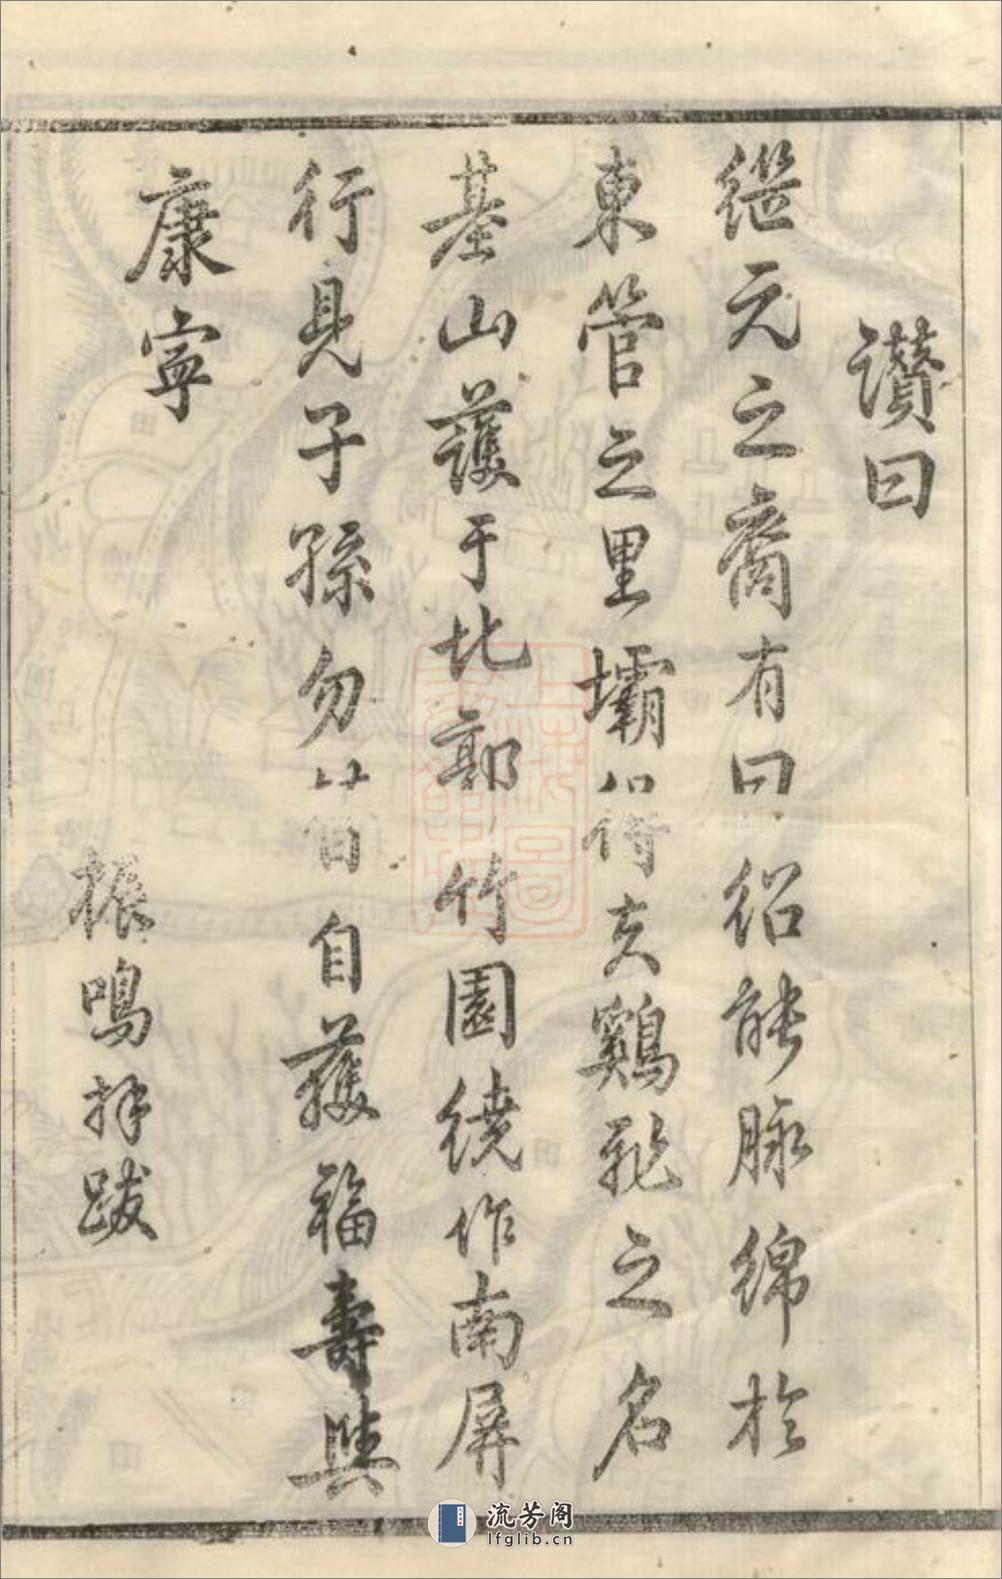 讚曰
継元之裔有曰紹能脉綿於
東管之里壩得鷄之名
基山護于北郭竹園繞作南屏
行見子孫勿自獲福壽與
康寧
振鳴拜跋
流芳阁
lfglib.cn